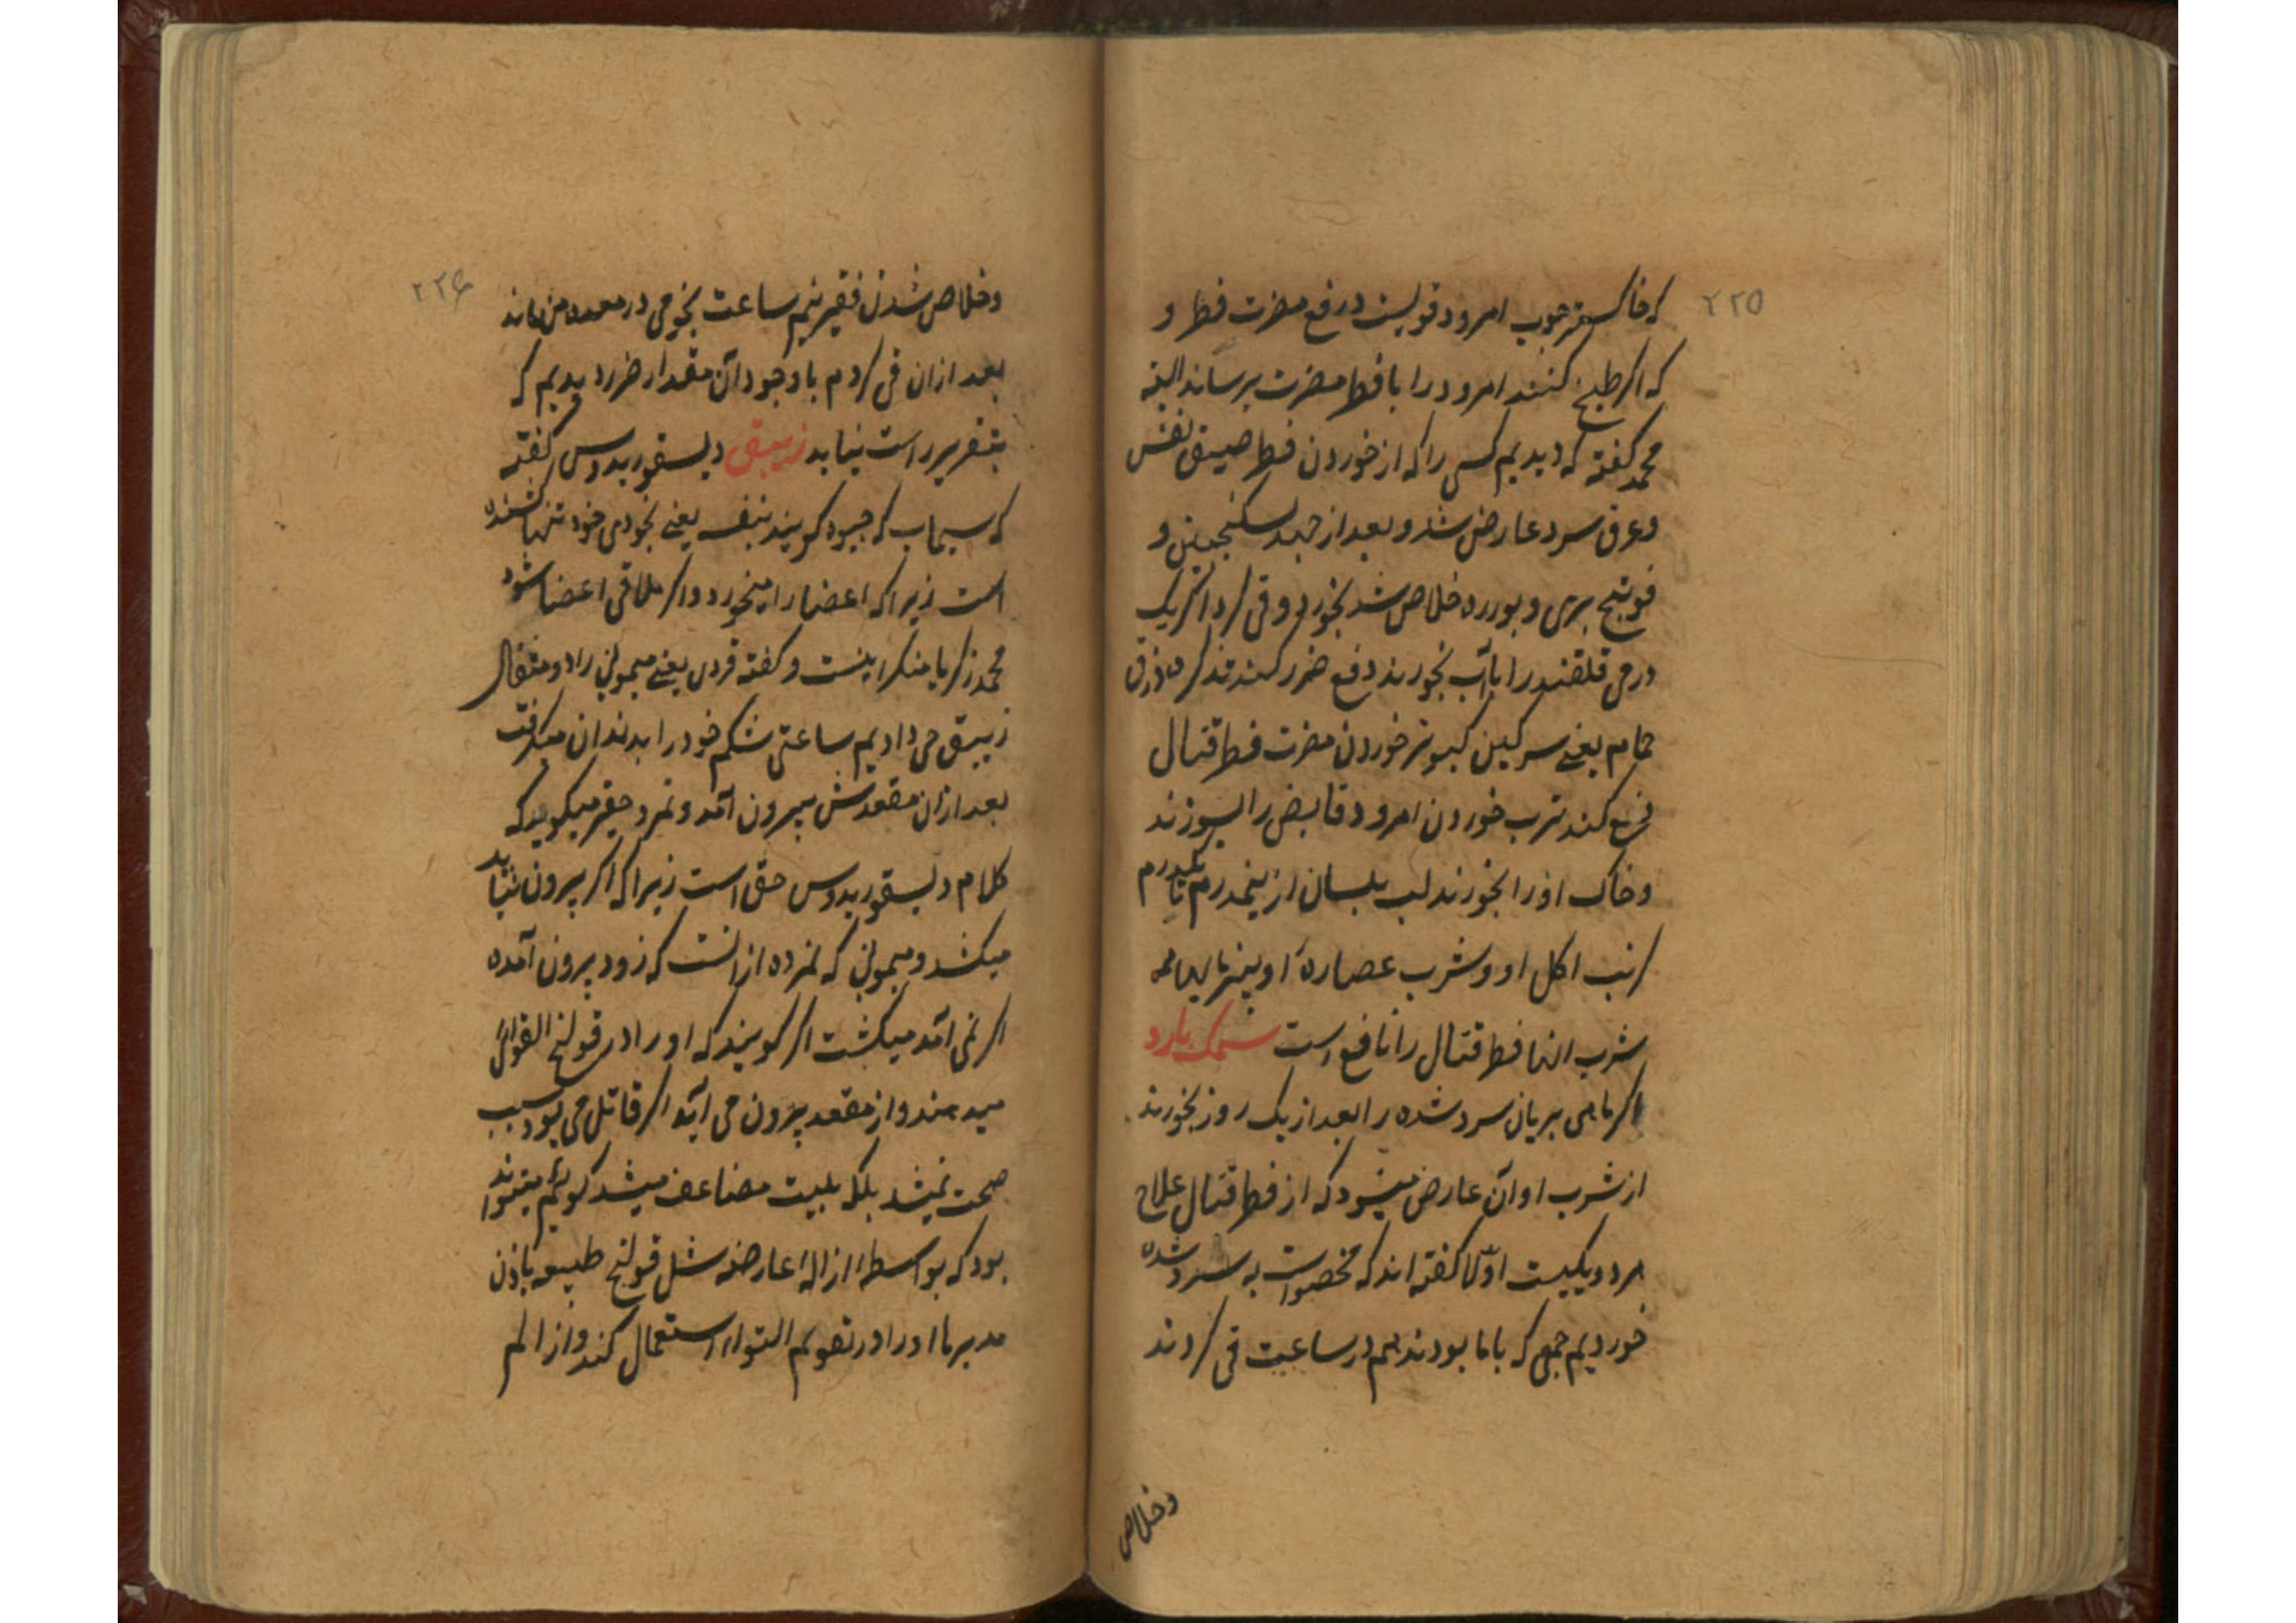 ۲۲۵
که خاکستر چوب امرود قویست در فع مضرت فطر و
که اگر طبخ کنند امرود را با فطر مضرت نرساند البته
محمد گفته که دیدیم کسی را که از خوردن فطر ضیق نفس
و عرق سرد عارض شد و بعد از سکنجبین و
فوتنج بری و بوره خلاص شد بخورد و قی کرد اگر یک
درمی قلقند را با آب بخورند دفع ضرر کند تذکره ذرق
حمام یعنی سرکین کبوتر خوردن مضرت فطر قتال
فع کند ترب خوردن امرود قابض را بسوزند
و خاک اورا بخورند لب بلسان از نیمدرم تا یکدرم
کرنب اکل او و شرب عصارهٔ او بنیز مایها همه
شرب انها فطر قتال را نافع است سمک بارد
اگر ماهی بریان سرد شده را بعد از یک روز بخورند
از شرب او آن عارض میشود که از فطر قتال علاج
هر دو یکیست اوّلا گفته اند که مخصوصست به سرد شده
خوردیم جمعی که با ما بودند هم در ساعت قی کردند
و خلاص
۲۲۶
و خلاص شدن فقیر نیم ساعت نجومی در معده من ماند
بعد از ان قی کردم با وجود آن مقدار ضرر دیدیم که
بتقریر راست نیاید زیبق دیسقوریدوس گفته
که سیماب که جیوه گویند بنفسه یعنی بخودی خود تنها کشنده
است زیرا که اعضا را میخورد و اگر ملاقی اعضا شود
محمد زکریا منکر اینست و گفته قردی یعنی میمونی را دو مثقال
زیبق می دادیم ساعتی شکم خود را بدندان میگرفت
بعد از ان مقعدش بیرون آمد و نمرد حقیر میگوید که
کلام دیسقوریدوس حق است زیرا که اگر بیرون نیاید
میکشد و میمونی که نمرده از انست که زود بیرون آمده
اگر نمی آمد میکشت اگر گویند که او را در قولنج التوائی
میدهند و از مقعد بیرون می آید اگر قاتل می بود سبب
صحت نمیشد بلکه بلیت مضاعف میشد گوئیم میتواند
بود که بواسطهٔ ازالهٔ عارضه مثل قولنج طبیعه باذن
مدبرها اورا در تقویم التوا استعمال کند و از الم